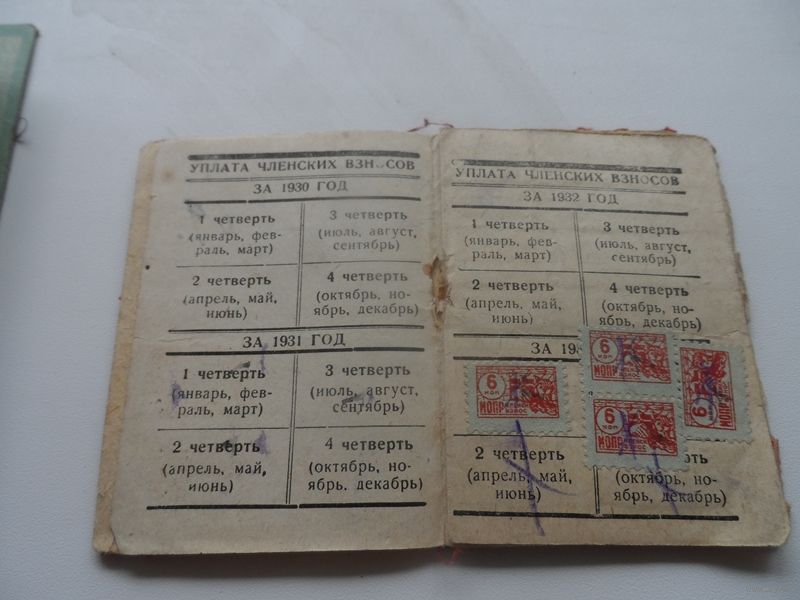 УПЛАТА ЧЛЕНСКИХ ВЗН СОВ
ЗА 1930 ГОД
1 четверть
(январь, фев-
раль, март)
3 четверть
(июль, август,
сентябрь)
2 четверть
(апрель, май,
июнь)
4 четверть
(октябрь, но-
ябрь, декабрь)
ЗА 1931 ГОД
1 четверть
(январь, фев-
раль, март)
3 четверть
(июль, август,
сентябрь)
2 четверть
(апрель, май,
июнь)
4 четверть
(октябрь, но-
ябрь, декабрь)
УПЛАТА ЧЛЕНСКИХ ВЗНОСОВ
ЗА 1932 ГОД
1 четверть
(январь, фев-
раль, март)
3 четверть
(июль, август,
сентябрь)
2 четверть
(апрель, май,
июнь)
4 четверть
(октябрь, но-
ябрь, декабрь)
ЗА 19
6
КОП
МОПР
ВЗНОС
6
КОП
МОПР
ВЗНОС
6
КОП
МОПР
ВЗНОС
6
МОПР
ВЗНОС
2 четверть
(апрель, май,
июнь)
ть
(октябрь, но-
ябрь, декабрь)